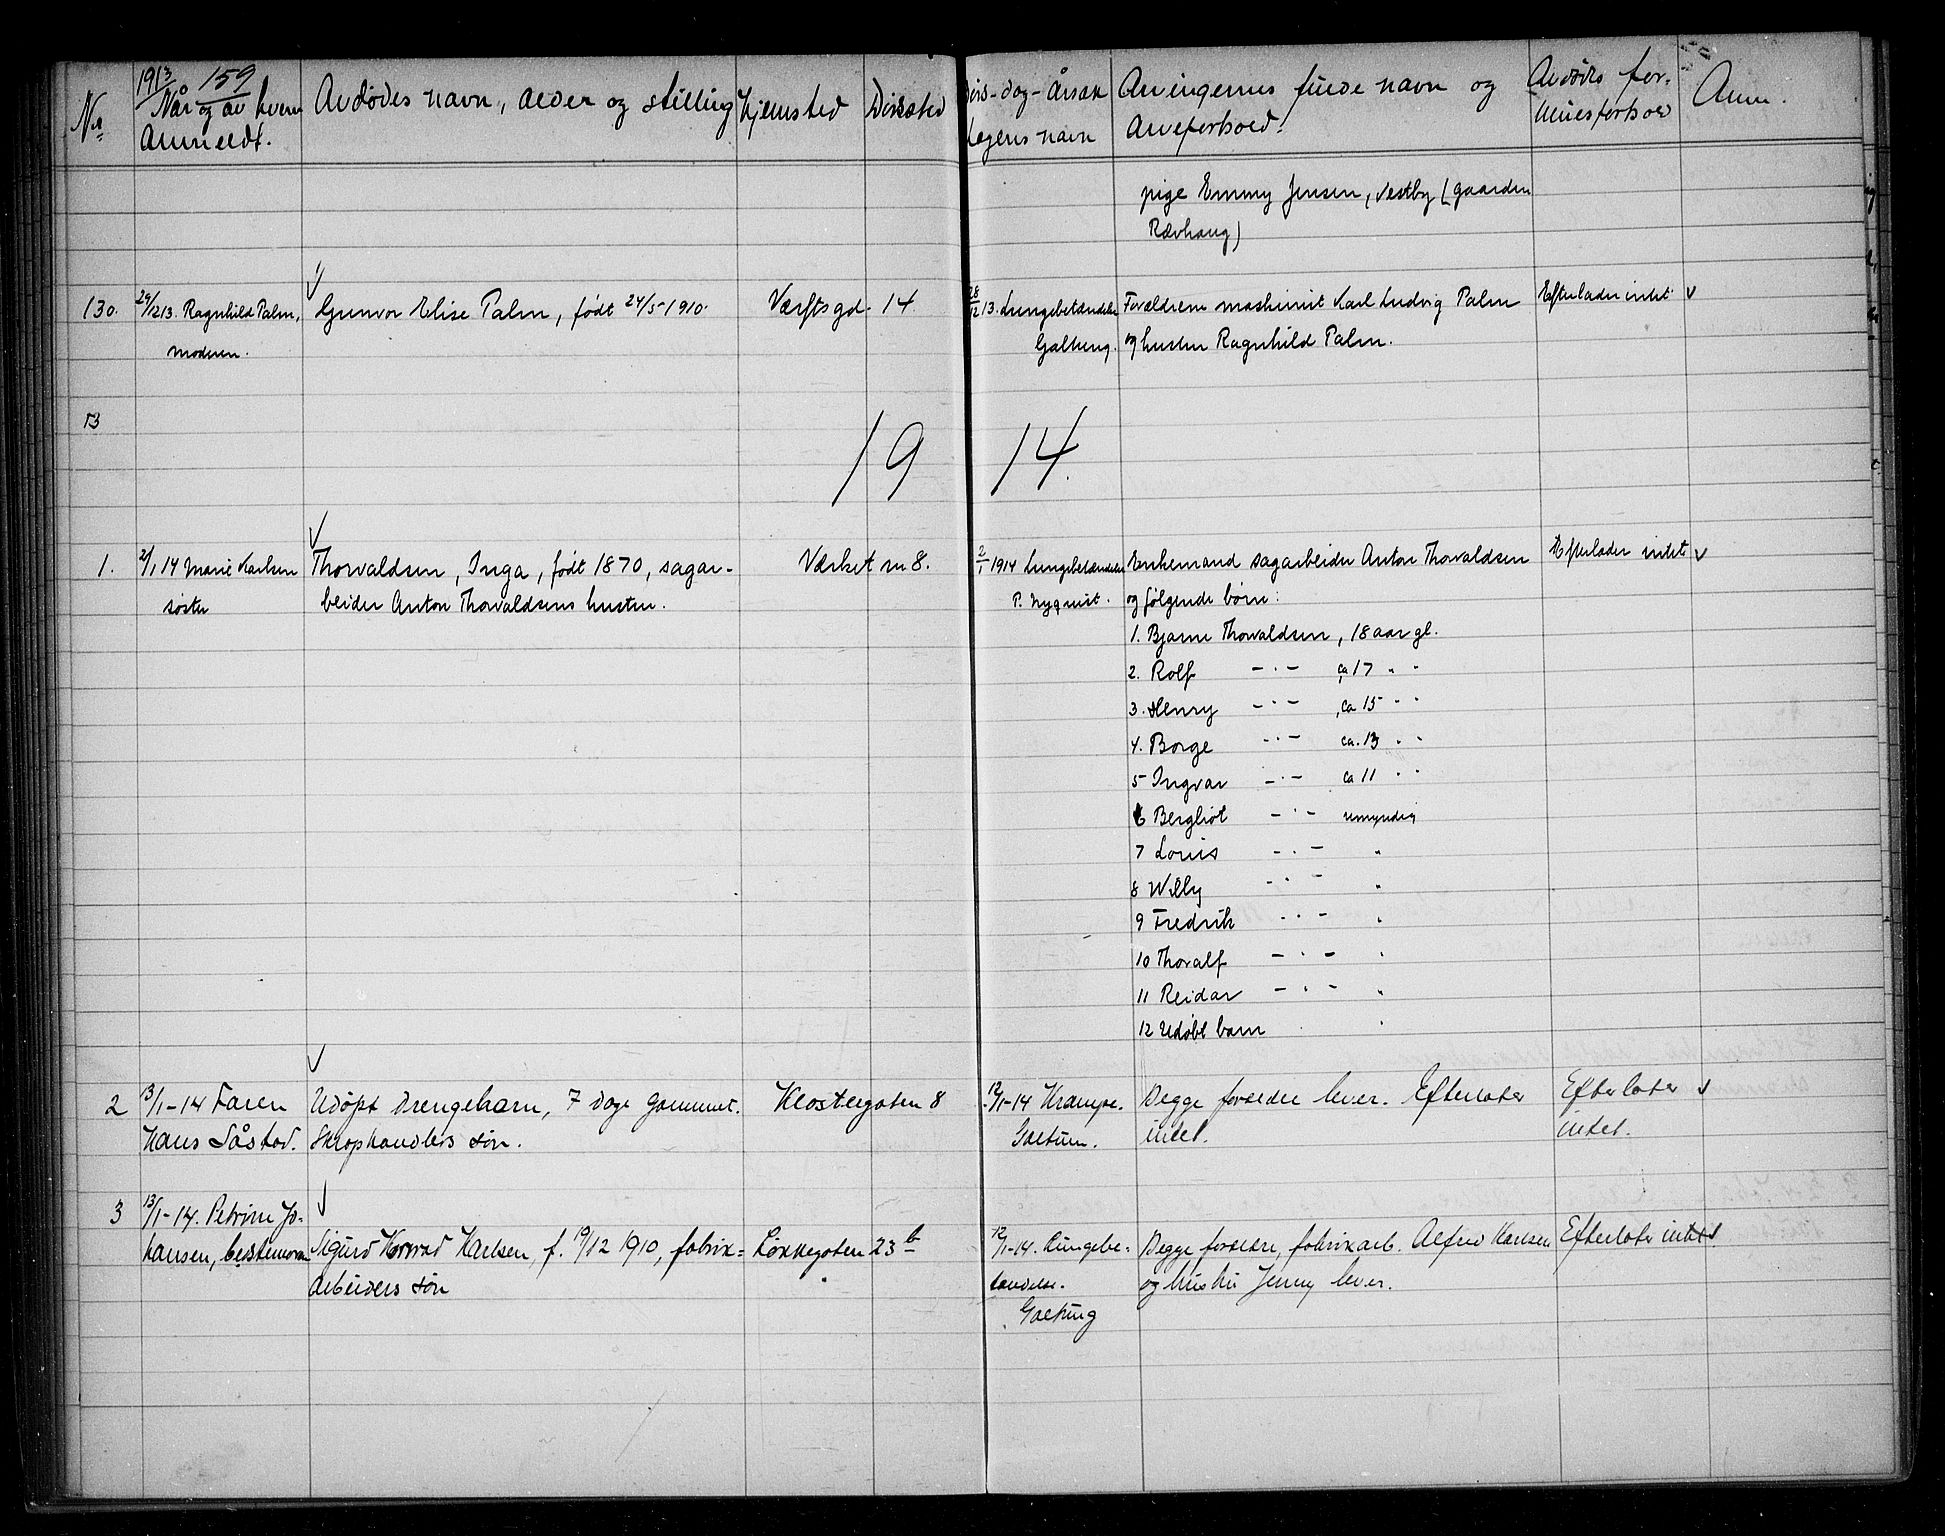 1913 159
No Når og av hvem Avdødes navn, alder og stilling Hjemsted Dødssted Døds-dag-Årsak Arvingernes fulde navn og Avdødes for-
Anmeldt. Lægens navn Arveforhold. muesforhold Anm.
pige Emmy Jensen, Vestby (gaarden
Rævhaug)
130. 29/12 13. Ragnhild Palm, Gunvor Elise Palm, født 24/5-1910. Værftsgd. 14. 28/12 13. Lungebetændelse Forældrene maskinist Karl Ludvig Palm Efterlader intet
moderen. Galtung. og hustru Ragnhild Palm.
13
19 14.
1. 2/1 14 Marie Karlsen Thorvaldsen, Inga, født 1870, sagar- Værket nr 8. 2/1 1914 Lungebetændelse Enkemand sagarbeider Anton Thorvaldsen Efterlader intet
søster beider Anton Thorvaldsens hustru. P. Nyquist. og følgende børn:
1. Bjarne Thorvaldsen, 18 aar gl.
2. Rolf -"- ca 17 " "
3. Henry -"- , ca 15 " "
4. Borge -"- ca. 13 " "
5 Ingvar -"- ca 11 " "
6 Bergliot -"- umyndig
7 Louis -"- "
8 Willy -"- "
9 Fredrik -"- "
10 Thoralf -"- "
11 Reidar -"- "
12 Udøbt barn "
2 13/1-14 Faren Udøpt drengebarn, 7 dage gammel. Klostergaten 8 12/1-14 Krampe. Begge forældre lever. Efterlater Efterlater
Hans Såstad. Skraphandlers søn. Galtung. intet. intet.
3 13/1-14. Petrine Jo-
hansen, bestemoren Sigurd Konrad Karlsen f. 19/12 1910, fabrik= Løkkegaten 23 b 12/1-14. Lungebe- Begge forældre, fabrikarb. Alfred Karlsen Efterlater intet
arbeiders søn tændelse. og hustru Jenny lever.
Galtung